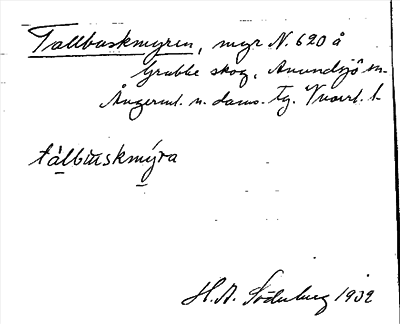 Tallbuskmyren, myr N. 620 å
Grubbe skog, Anundsjö sn.
Ångerml. n. doms. Tg. l.
tálbuskmýra
H. A. Söderberg 1932